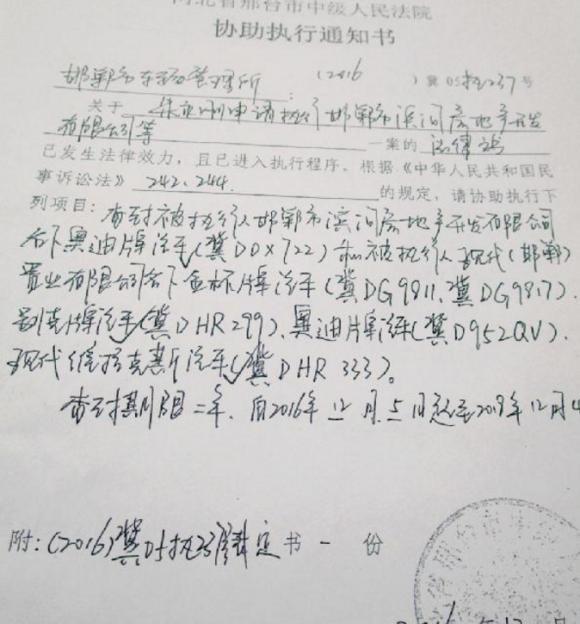 河北省邢台市中级人民法院
协助执行通知书
邯郸市车辆管理所: (2016)冀05执237号
关于 申请执行邯郸市滨河房地产开发
有限公司等 一案的 法律
已发生法律效力,且已进入执行程序。根据《中华人民共和国民
事诉讼法》242、244. 的规定,请协助执行下
列项目:查封被执行人邯郸市滨河房地产开发有限公司
名下奥迪牌汽车(冀D0X722)和被执行人现代(邯郸)
置业有限公司名下金杯牌汽车(冀DG9811、冀DG9817).
别克牌汽车(冀DHR299)、奥迪牌汽车(冀D952QV)、
现代维拉克斯汽车(冀DHR333)。
查封期限二年,自2016年12月5日起至2018年12月4
附:(2016)冀05执237号裁定书一份